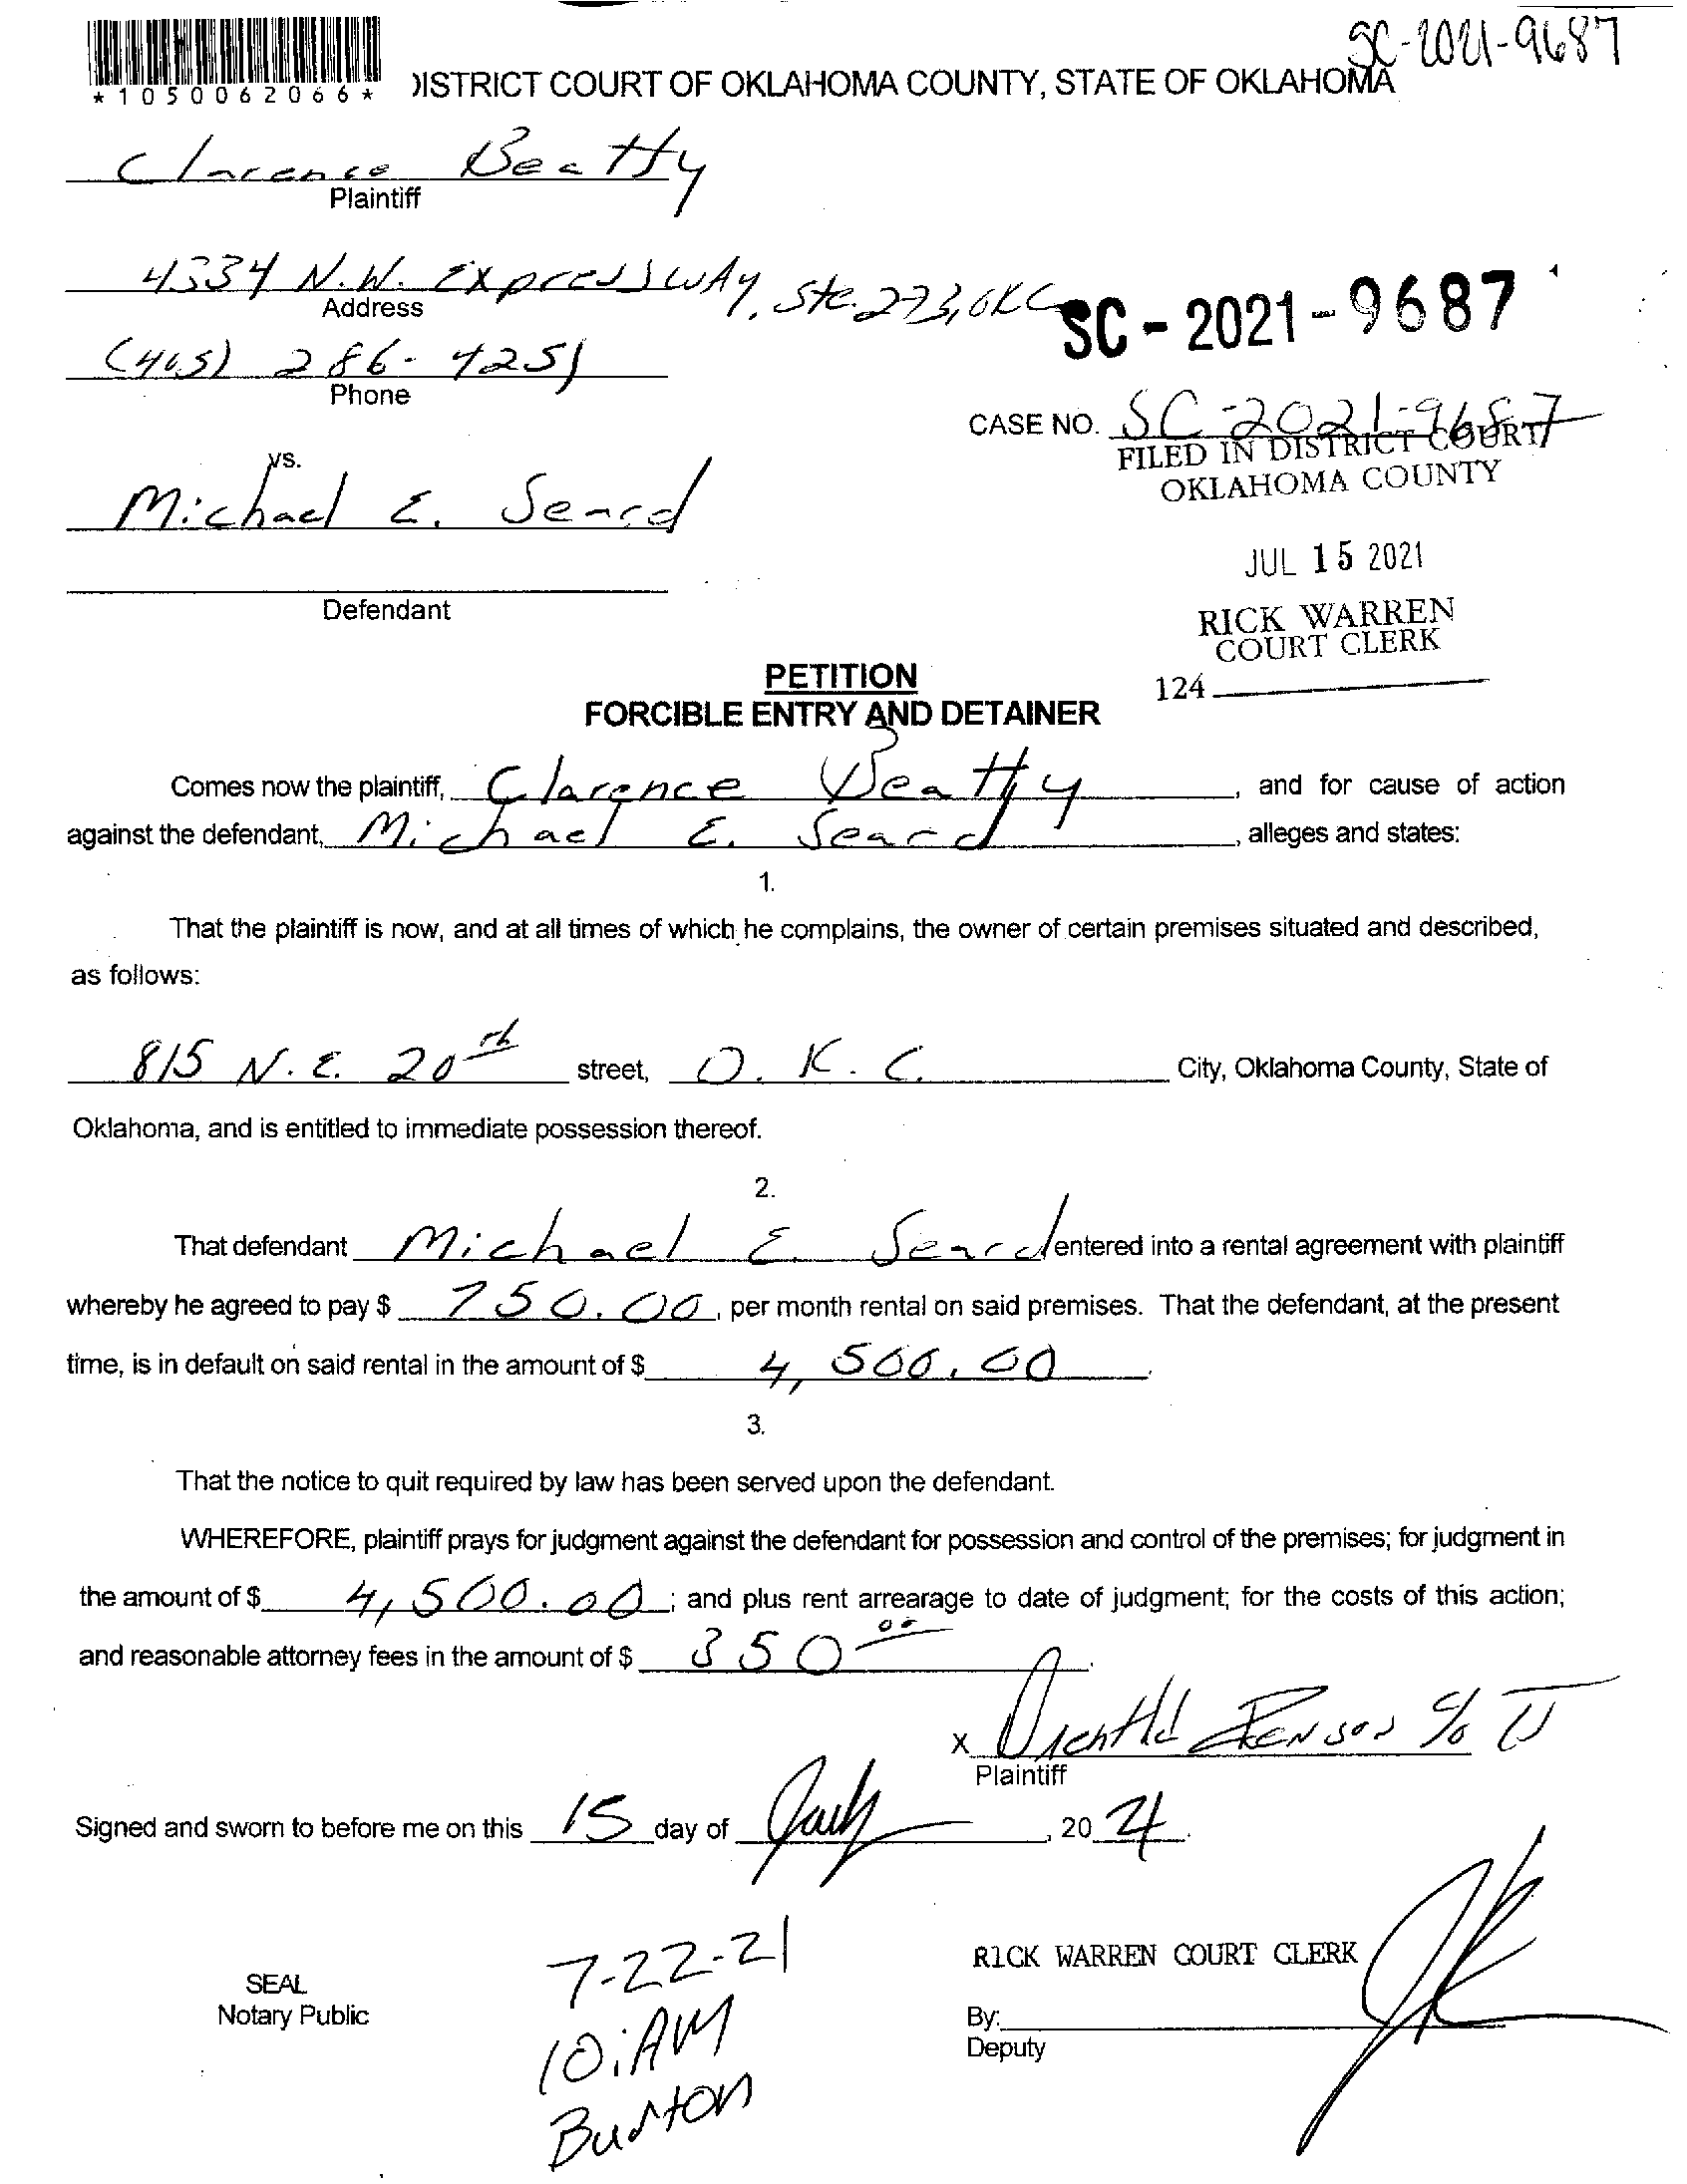 SC-2021-9687
*1050062066*
DISTRICT COURT OF OKLAHOMA COUNTY, STATE OF OKLAHOMA
Clarence Beatty
Plaintiff
4334 N.W. Expressway, Ste. 273, OKC
Address
SC-2021-9687
(405) 286-4251
Phone
CASE NO. SC-2021-9687
FILED IN DISTRICT COURT
OKLAHOMA COUNTY
vs.
Michael E. Seard
JUL 15 2021
Defendant
RICK WARREN
COURT CLERK
124
PETITION
FORCIBLE ENTRY AND DETAINER
Comes now the plaintiff, Clarence Beatty, and for cause of action
against the defendant, Michael E. Seard, alleges and states:
1.
That the plaintiff is now, and at all times of which he complains, the owner of certain premises situated and described,
as follows:
815 N.E. 20th street, O.K.C. City, Oklahoma County, State of
Oklahoma, and is entitled to immediate possession thereof.
2.
That defendant Michael E. Seard entered into a rental agreement with plaintiff
whereby he agreed to pay $ 750.00, per month rental on said premises. That the defendant, at the present
time, is in default on said rental in the amount of $ 4,500.00.
3.
That the notice to quit required by law has been served upon the defendant.
WHEREFORE, plaintiff prays for judgment against the defendant for possession and control of the premises; for judgment in
the amount of $ 4,500.00; and plus rent arrearage to date of judgment; for the costs of this action;
and reasonable attorney fees in the amount of $ 350 00.
X
Plaintiff
Signed and sworn to before me on this 15 day of July, 20 21.
7-22-21
RICK WARREN COURT CLERK
SEAL
Notary Public
10:AM
By:
Deputy
Burton